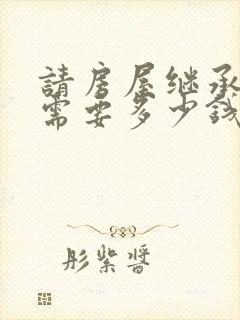 請房屋继承
需要多少钱
彤紫酱